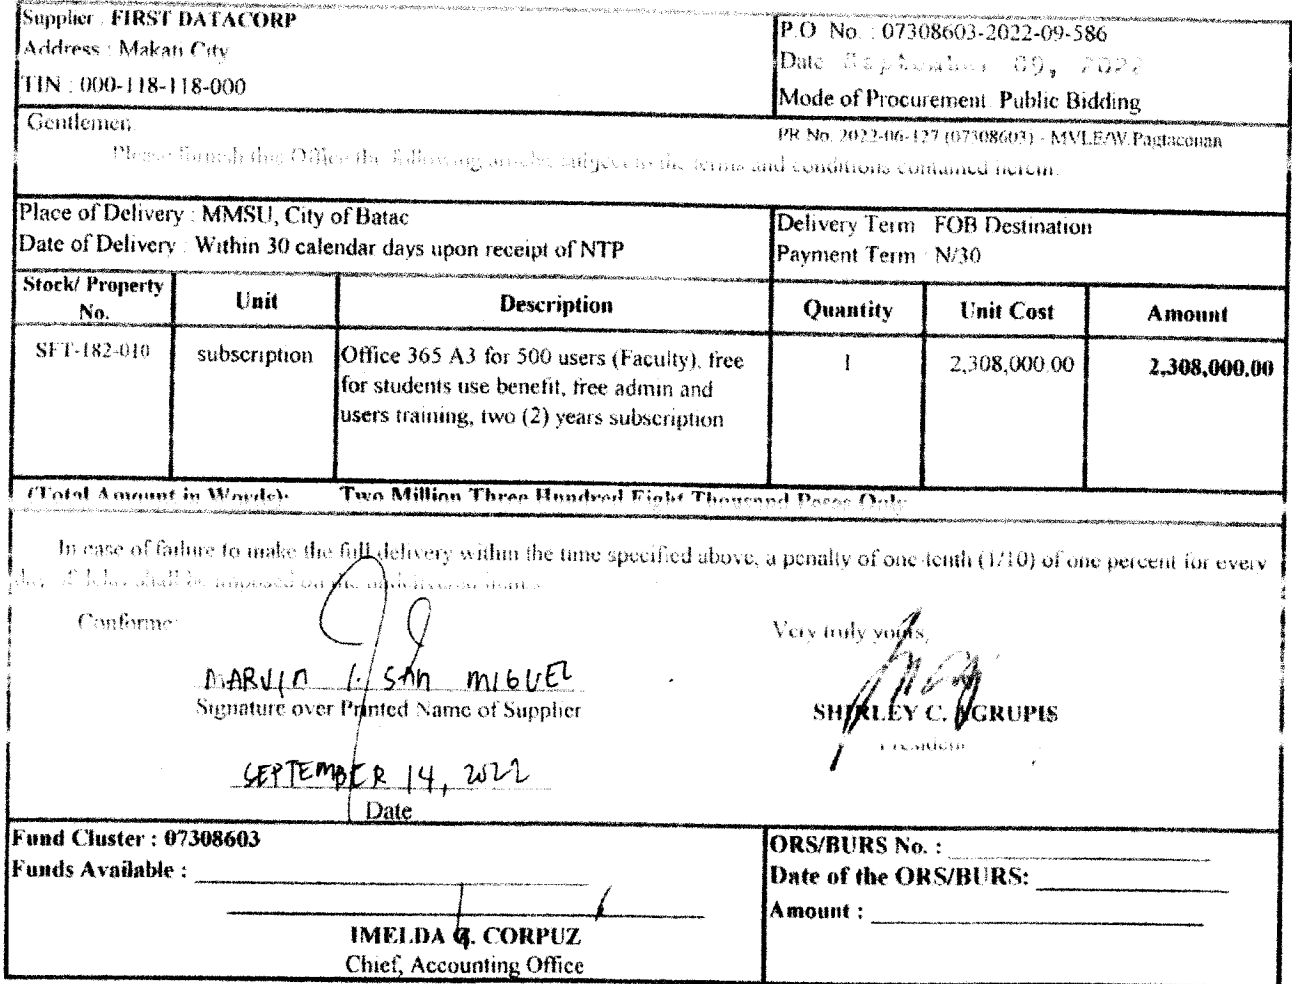 Supplier : FIRST DATACORP
Address : Makati City
TIN : 000-118-118-000
P.O No. : 07308603-2022-09-586
Date September 09, 2022
Mode of Procurement Public Bidding
Gentlemen
PR No. 2022-06-127 (07308603) - MVLE/W.Pagtaconan
Please furnish this Office the following articles subject to the terms and conditions contained herein.
Place of Delivery : MMSU, City of Batac
Date of Delivery : Within 30 calendar days upon receipt of NTP
Delivery Term FOB Destination
Payment Term : N/30
Stock/ Property No.
Unit
Description
Quantity
Unit Cost
Amount
SFT-182-010
subscription
Office 365 A3 for 500 users (Faculty), free
for students use benefit, free admin and
users training, two (2) years subscription
1
2,308,000.00
2,308,000.00
(Total Amount in Words): Two Million Three Hundred Eight Thousand Pesos Only
In case of failure to make the full delivery within the time specified above, a penalty of one-tenth (1/10) of one percent for every
day of delay shall be imposed on the undelivered items.
Conforme:
Very truly yours,
MARVIN I. SAN MIGUEL
Signature over Printed Name of Supplier
SHIRLEY C. AGRUPIS
President
SEPTEMBER 14, 2022
Date
Fund Cluster : 07308603
Funds Available :
IMELDA G. CORPUZ
Chief, Accounting Office
ORS/BURS No. :
Date of the ORS/BURS:
Amount :